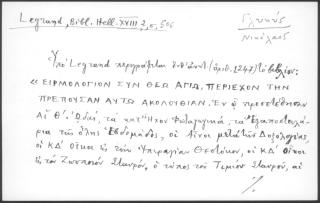 Legrand, Bibl. Hell. XVIII 2, σ. 506
Γλυκύς
Νικόλαος
Ὑπὸ Legrand περιγράφεται (ἀριθ. 1247) τὸ βιβλίον:
«ΕΙΡΜΟΛΟΓΙΟΝ ΣΥΝ ΘΕΩ ΑΓΙΩ, ΠΕΡΙΕΧΟΝ ΤΗΝ
ΠΡΕΠΟΥΣΑΝ ΑΥΤΩ ΑΚΟΛΟΥΘΙΑΝ. Ἐν ᾧ προσετέθησαν
Αἱ Θ΄. ᾨδαί, τὰ κατ' Ἦχον Φωταγωγικά, τὰ Ἐξαποστειλά-
ρια τῆς ὅλης Ἑβδομάδος, οἱ Αἶνοι μετὰ τῆς Δοξολογίας,
οἱ ΚΔ΄ Οἶκοι εἰς τὴν Ὑπεραγίαν Θεοτόκον, οἱ ΚΔ΄ Οἶκοι
εἰς τὸν Ζωοποιὸν Σταυρόν, ὁ τύπος τοῦ Τιμίου Σταυροῦ, αἱ